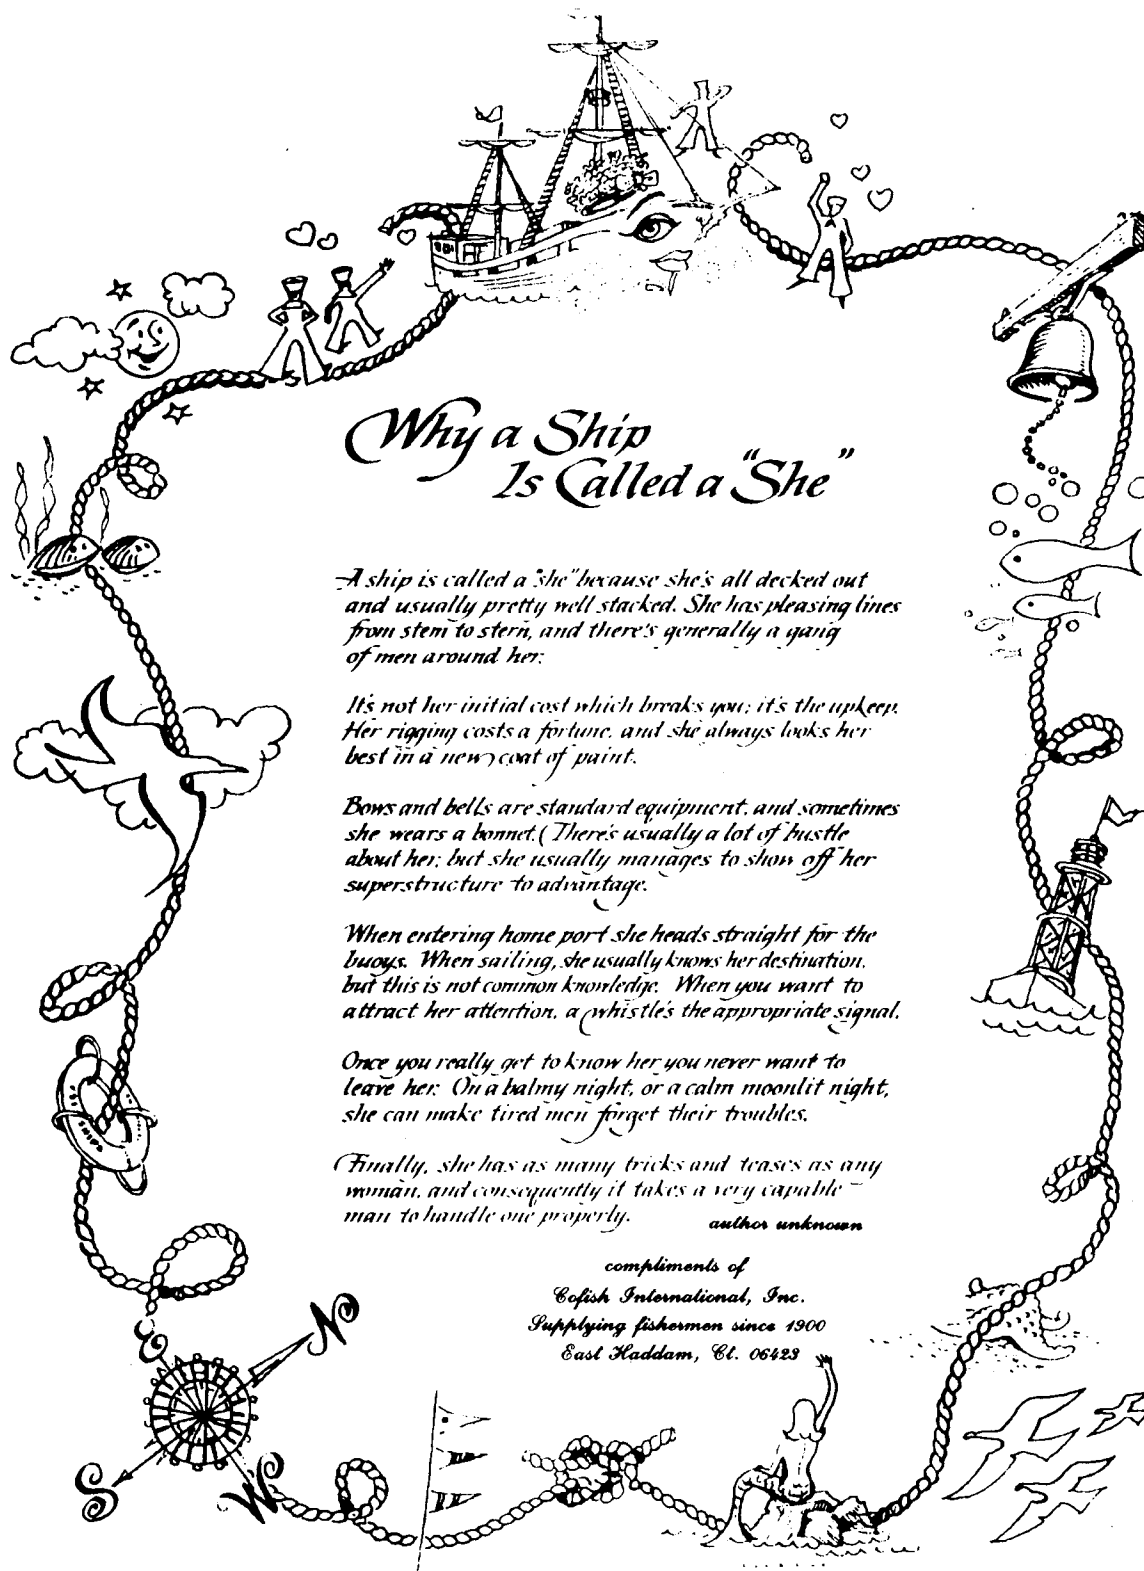 Why a Ship
Is Called a "She"
A ship is called a "she" because she's all decked out
and usually pretty well stacked. She has pleasing lines
from stem to stern, and there's generally a gang
of men around her.
It's not her initial cost which breaks you; it's the upkeep.
Her rigging costs a fortune, and she always looks her
best in a new coat of paint.
Bows and bells are standard equipment, and sometimes
she wears a bonnet. (There's usually a lot of bustle
about her; but she usually manages to show off her
superstructure to advantage.
When entering home port she heads straight for the
buoys. When sailing, she usually knows her destination,
but this is not common knowledge. When you want to
attract her attention, a whistle's the appropriate signal.
Once you really get to know her you never want to
leave her. On a balmy night, or a calm moonlit night,
she can make tired men forget their troubles.
Finally, she has as many tricks and teases as any
woman, and consequently it takes a very capable
man to handle one properly.
author unknown
compliments of
Cofish International, Inc.
Supplying fishermen since 1900
East Haddam, Ct. 06423
N
E
S
W